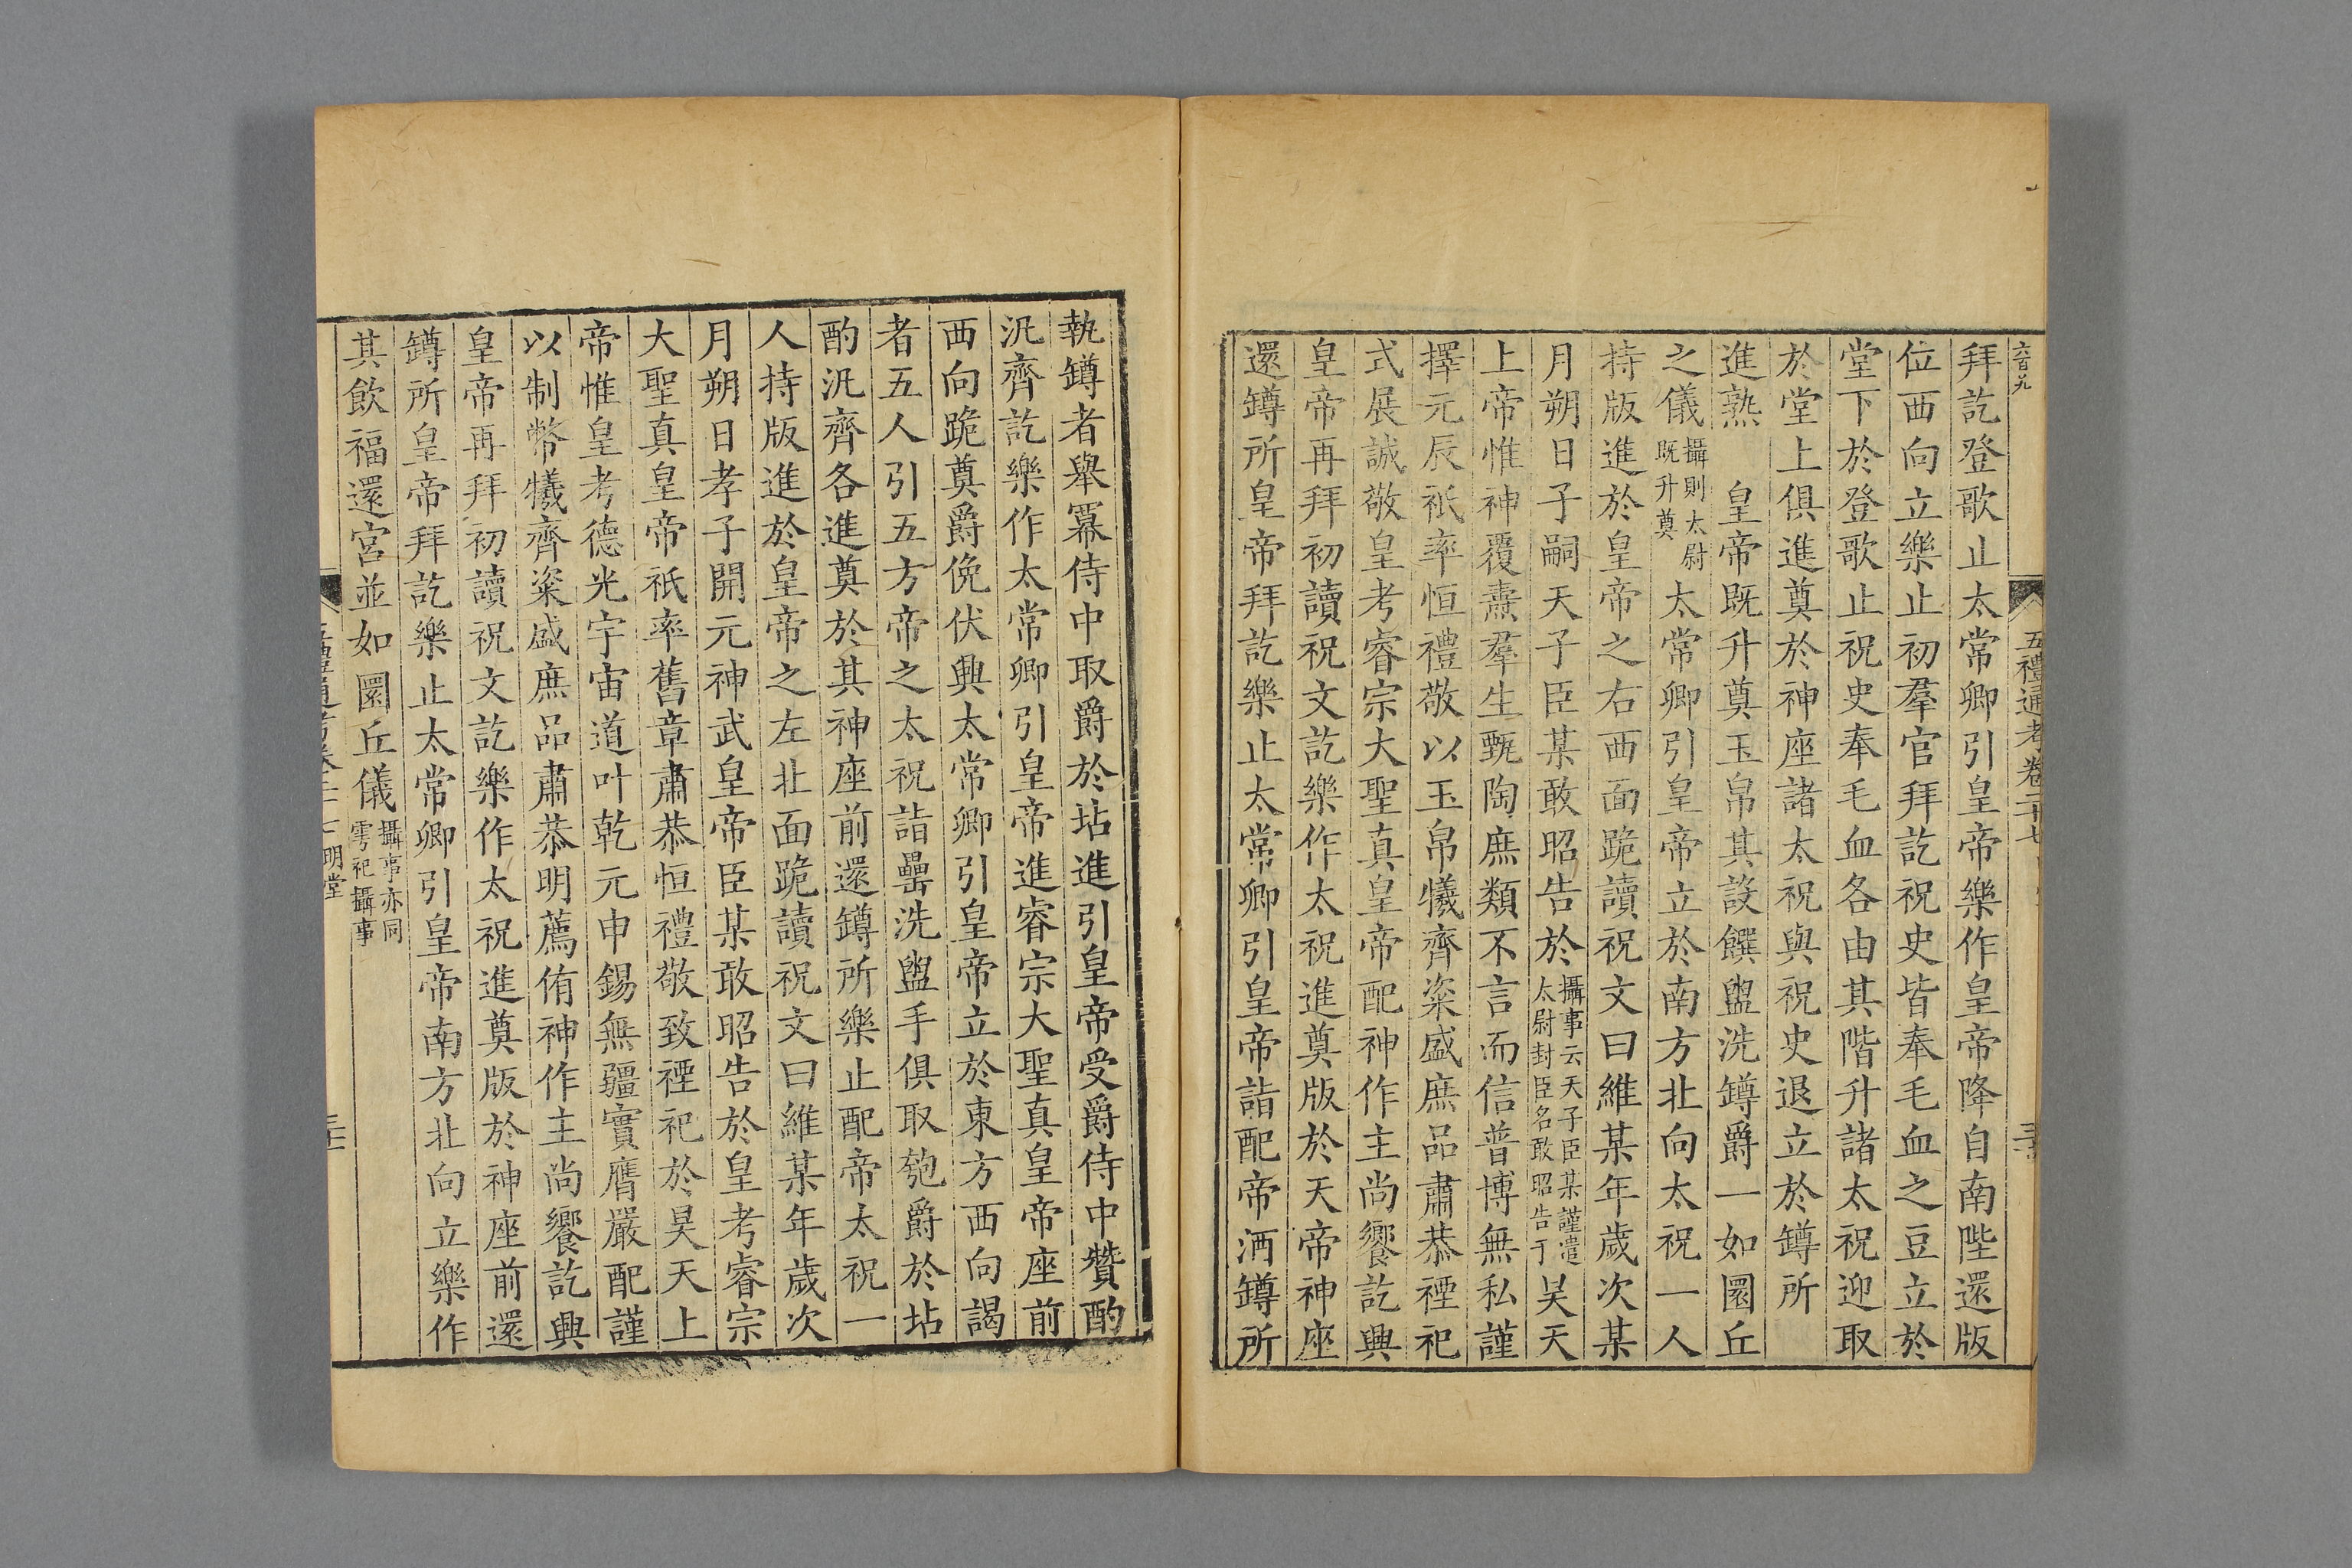 五禮通考卷二十七
拜訖登歌止太常卿引皇帝樂作皇帝降自南陛還版
位西向立樂止初羣官拜訖祝史皆奉毛血之豆立於
堂下於登歌止祝史奉毛血各由其階升諸太祝迎取
於堂上俱進奠於神座諸太祝與祝史退立於罇所
進熟 皇帝既升奠玉帛其設饌盥洗罇爵一如圜丘
之儀攝則太尉既升奠太常卿引皇帝立於南方北向太祝一人
持版進於皇帝之右西面跪讀祝文曰維某年歲次某
月朔日子嗣天子臣某敢昭告於攝事云天子臣某謹遣太尉封臣名敢昭告于昊天
上帝惟神覆燾羣生甄陶庶類不言而信普博無私謹
擇元辰祇率恒禮敬以玉帛犧齊粢盛庶品肅恭禋祀
式展誠敬皇考睿宗大聖真皇帝配神作主尚饗訖興
皇帝再拜初讀祝文訖樂作太祝進奠版於天帝神座
還罇所皇帝拜訖樂止太常卿引皇帝詣配帝酒罇所
執罇者舉冪侍中取爵於坫進引皇帝受爵侍中贊酌
汎齊訖樂作太常卿引皇帝進睿宗大聖真皇帝座前
西向跪奠爵俛伏興太常卿引皇帝立於東方西向謁
者五人引五方帝之太祝詣罍洗盥手俱取匏爵於坫
酌汎齊各進奠於其神座前還罇所樂止配帝太祝一
人持版進於皇帝之左北面跪讀祝文曰維某年歲次
月朔日孝子開元神武皇帝臣某敢昭告於皇考睿宗
大聖真皇帝祇率舊章肅恭恒禮敬致禋祀於昊天上
帝惟皇考德光宇宙道叶乾元申錫無疆實膺嚴配謹
以制幣犧齊粢盛庶品肅恭明薦侑神作主尚饗訖興
皇帝再拜初讀祝文訖樂作太祝進奠版於神座前還
罇所皇帝拜訖樂止太常卿引皇帝南方北向立樂作
其飲福還宮並如圜丘儀攝事亦同雩祀攝事
明堂